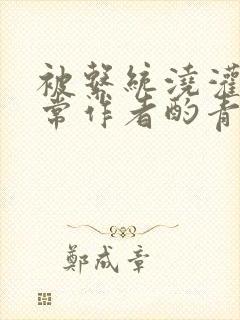 被繫統澆灌
常作者酌青
鄭成章